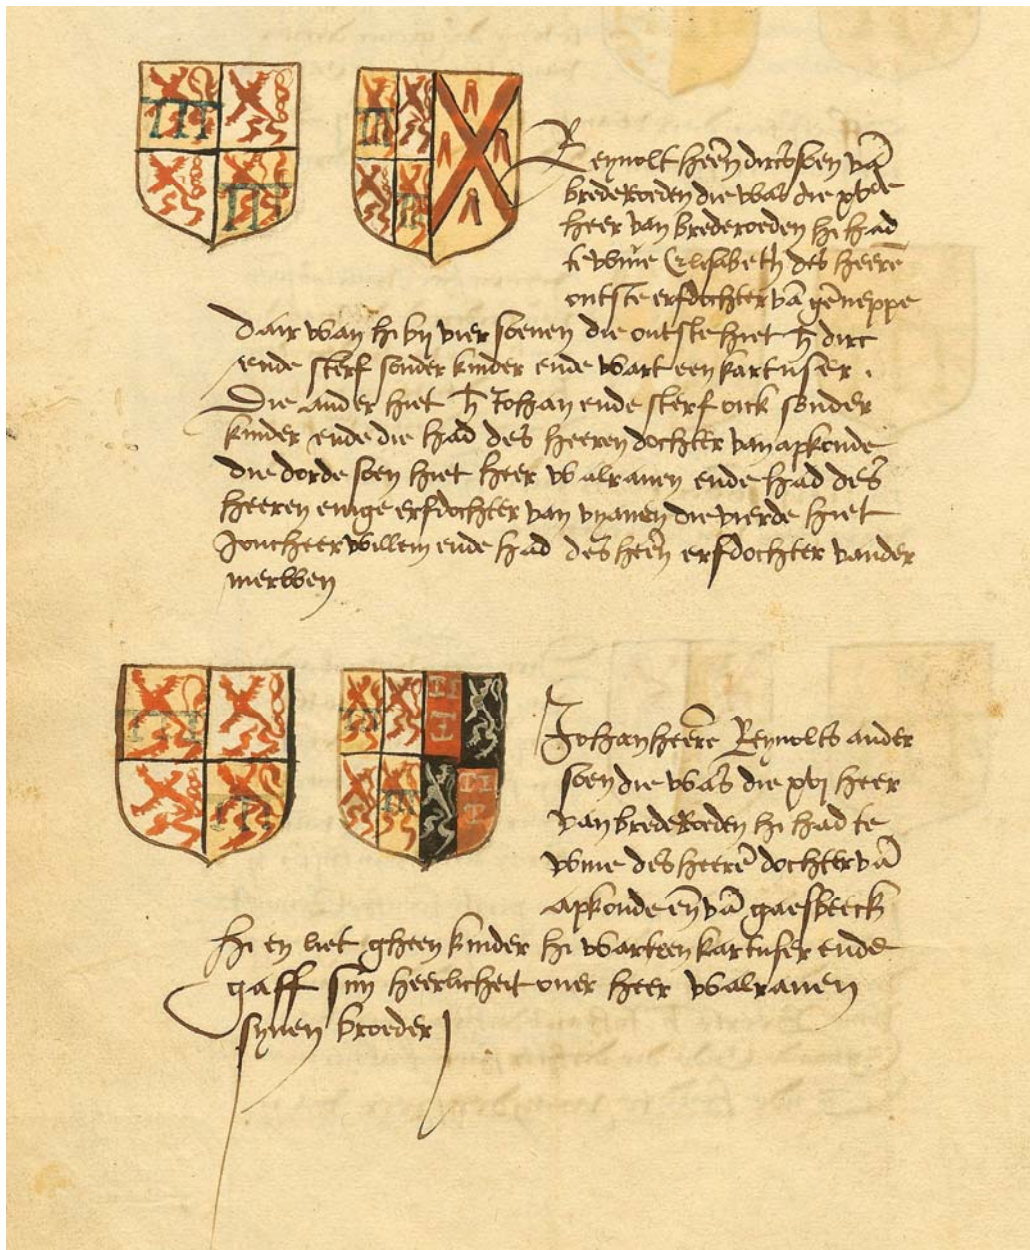 Reynolt heren dircs soen vā
brederoeden die was die xvde
heer van brederoeden hi had
te wive Elisabeth des heerē
outste erfdochter vā gēneppe
dair wan hi bij vier soenen die outste hiet h dirc
ende sterf sonder kinder ende wart een kartuser .
Die ander hiet h Johan ende sterf oick sonder
kinder ende die had des heeren dochter van apkoude
die dorde soen hiet heer walraven ende had des
heeren enige erfdochter van vyanen die vierde hiet
Joncheer willem ende had des heren erfdochter vander
merwen
Johan heere Reynolts ander
soen die was die xvj heer
van brederoeden hi had te
wive des heerē dochter vā
apkoude eñ vā gaesbeeck
hi en liet gheen kinder hi wart een kartuser ende
gaff sijn heerlicheit over heer walraven
synen broeder